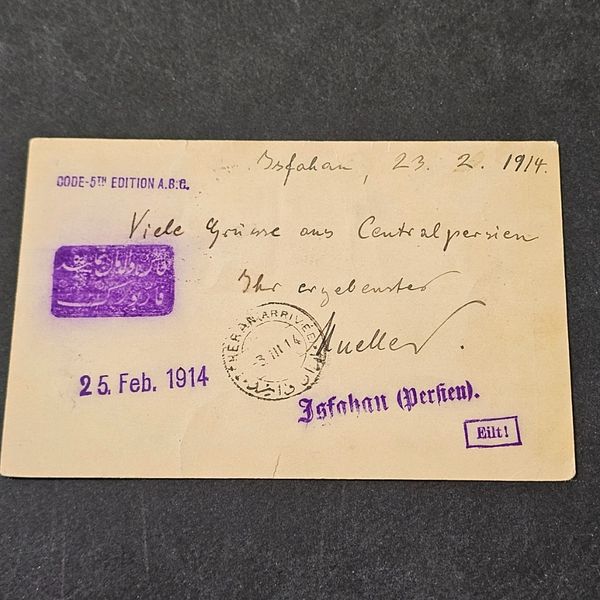 Isfahan, 23. 2. 1914.
CODE-5TH EDITION A.B.C.
Viele Grüsse aus Centralpersien
Ihr ergebenster
Mueller.
TEHERAN ARRIVÉE
3 III 14
25. Feb. 1914
Isfahan (Persien).
Eilt!